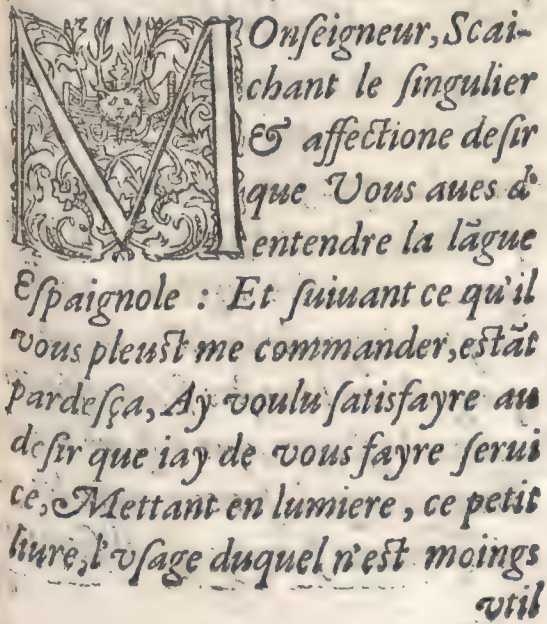 MOnſeigneur, Scai-
chant le ſingulier
& affectione deſir
que Vous aues d'
entendre la lãgue
Eſpaignole : Et ſuiuant ce qu'il
vous pleuſt me commander, eſtãt
pardeſça, Ay voulu ſatisfayre au
deſir que iay de vous fayre ſerui
ce, Mettant en lumiere, ce petit
liure, l'vſage duquel n'eſt moings
vtil